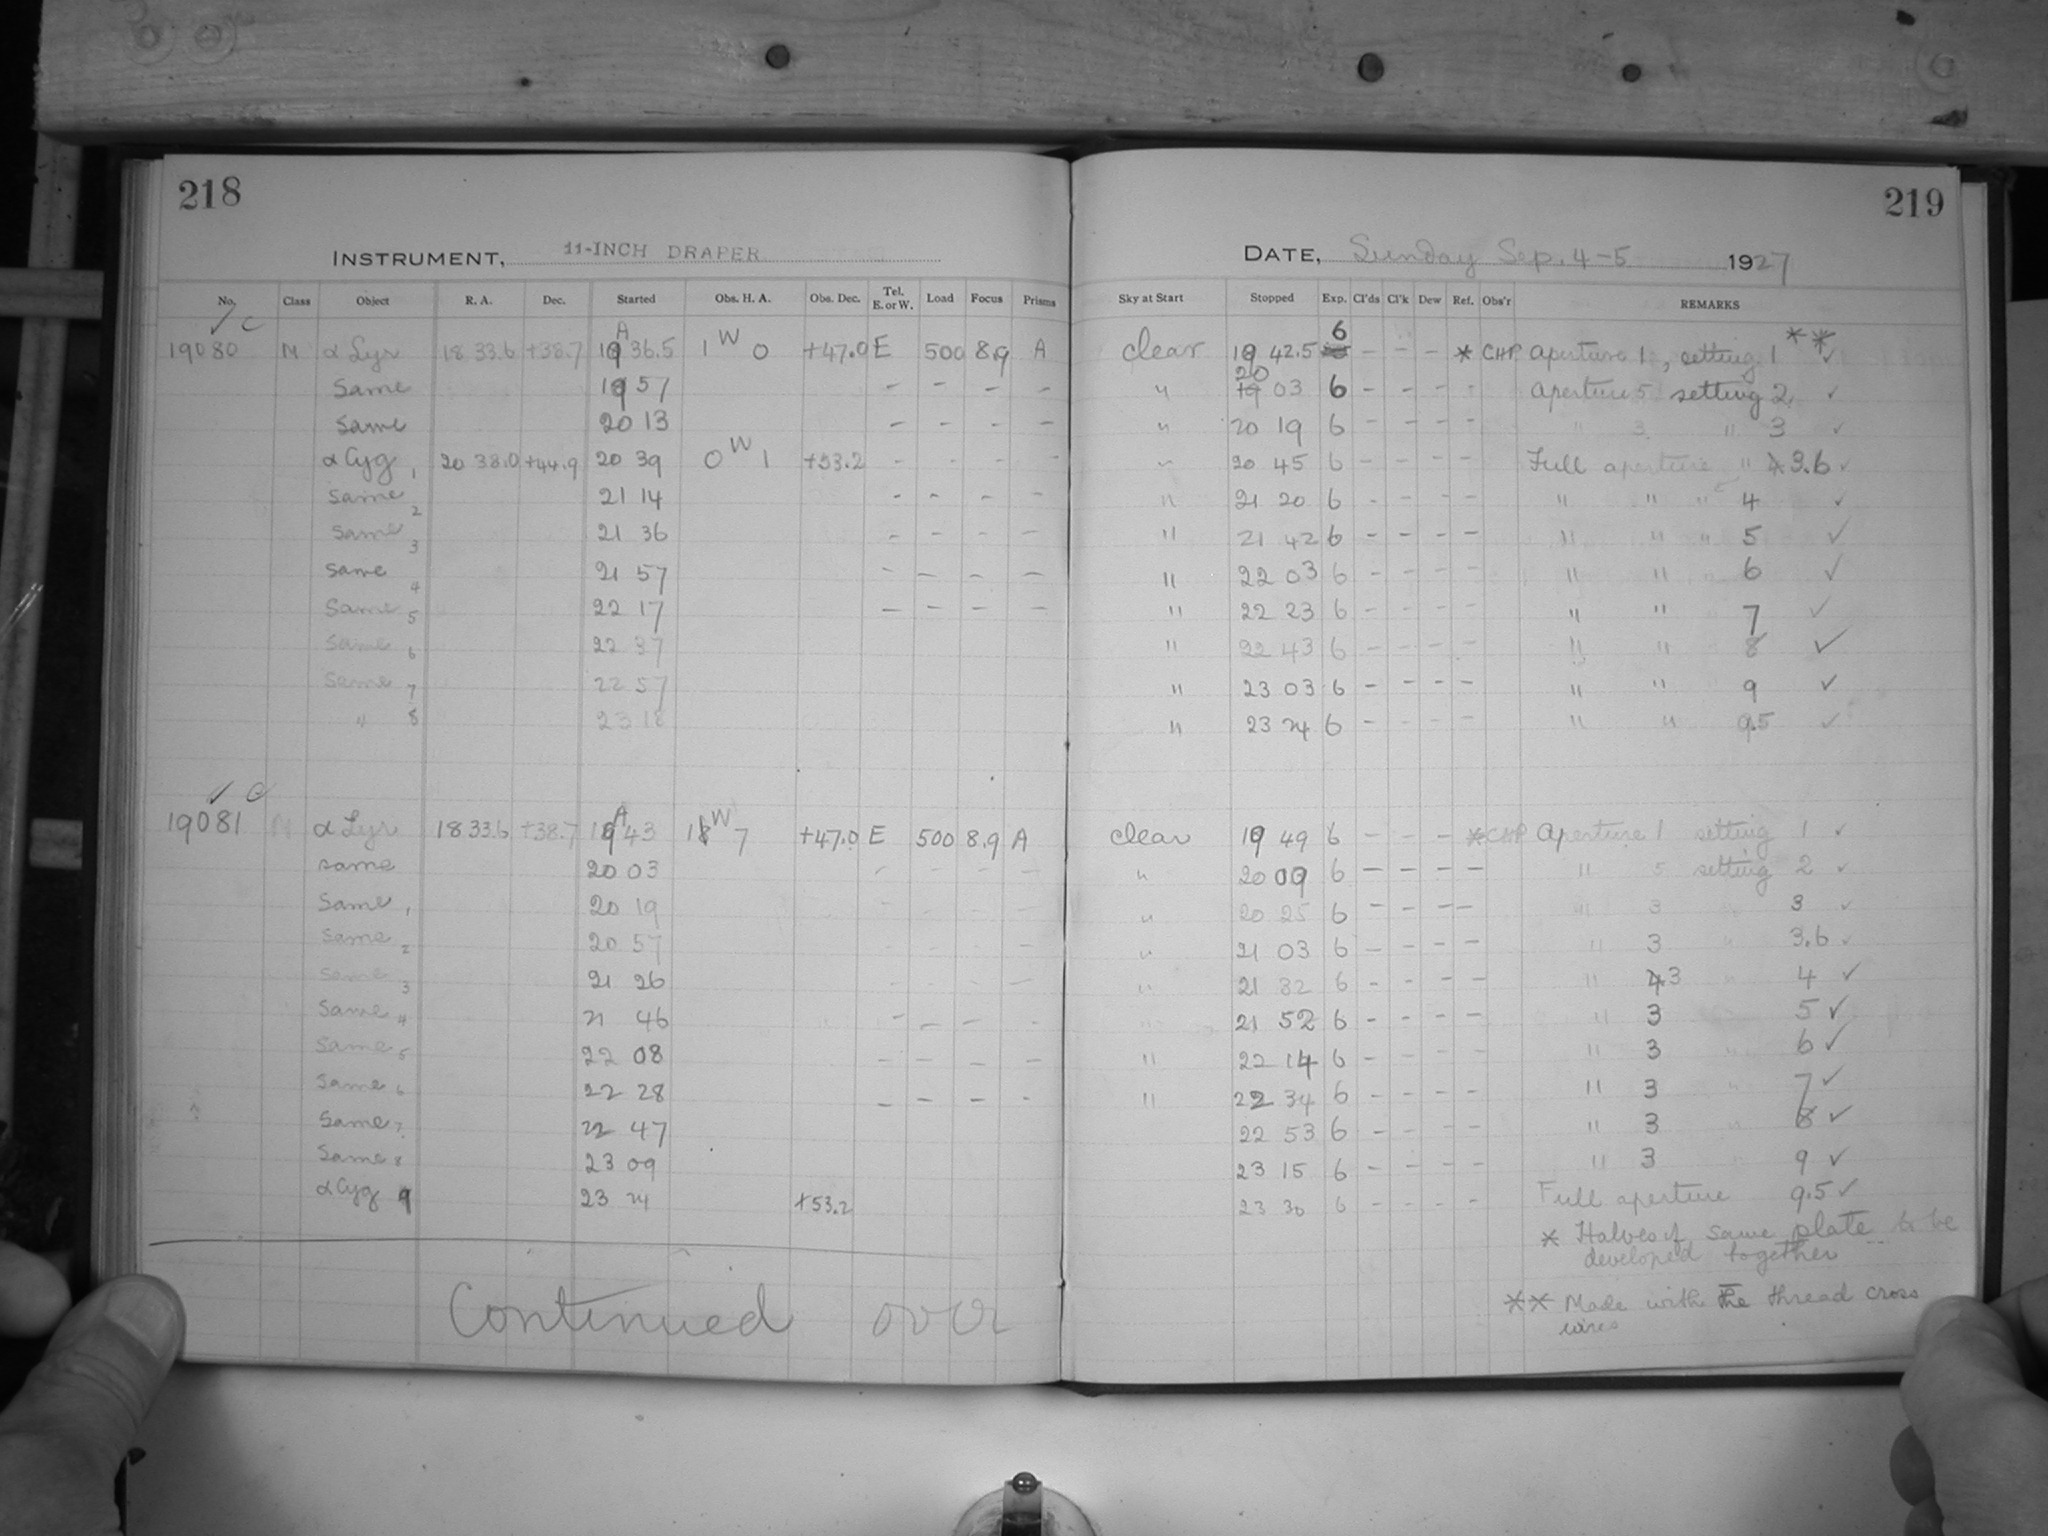 218
INSTRUMENT, 11-INCH DRAPER
No. Class Object R. A. Dec. Started Obs. H. A. Obs. Dec. Tel. E. or W. Load Focus Prisms
✓ C
19080 M α Lyr 18 33.6 +38.7 A 19 36.5 1 W 0 +47.0 E 500 8.9 A
Same 19 57 – – – –
Same 20 13 – – – –
α Cyg 1 20 38.0 +44.9 20 39 0 W 1 +53.2 – – – –
Same 2 21 14 – – – –
Same 3 21 36 – – – –
Same 4 21 57 – – – –
Same 5 22 17 – – – –
Same 6 22 37
Same 7 22 57
" 8 23 18
✓ C
19081 M α Lyr 18 33.6 +38.7 A 19 43 1 W 7 +47.0 E 500 8.9 A
Same 20 03 – – – –
Same 1 20 19 – – – –
Same 2 20 57 – – – –
Same 3 21 26 – – – –
Same 4 21 46 – – – –
Same 5 22 08 – – – –
Same 6 22 28 – – – –
Same 7 22 47
Same 8 23 09
α Cyg 9 23 24 +53.2
Continued over
219
DATE, Sunday Sep. 4-5 1927
Sky at Start Stopped Exp. Cl'ds Cl'k Dew Ref. Obs'r REMARKS
clear 19 42.5 6 – – – * CHP Aperture 1, setting 1 ** ✓
" 20 03 6 – – – - Aperture 5 setting 2 ✓
" 20 19 6 – – – – " 3 " 3 ✓
" 20 45 6 – – – – Full aperture " 3.6 ✓
" 21 20 6 – – – – " " " 4 ✓
" 21 42 6 – – – – " " " 5 ✓
" 22 03 6 – – – – " " 6 ✓
" 22 23 6 – – – – " " 7 ✓
" 22 43 6 – – – – " " 8 ✓
" 23 03 6 – – – – " " 9 ✓
" 23 24 6 – – – – " " 9.5 ✓
clear 19 49 6 – – – * CHP Aperture 1 setting 1 ✓
" 20 09 6 – – – – " 5 setting 2 ✓
" 20 25 6 – – – – " 3 " 3 ✓
" 21 03 6 – – – – " 3 " 3.6 ✓
" 21 32 6 – – – – " 3 " 4 ✓
" 21 52 6 – – – – " 3 5 ✓
" 22 14 6 – – – – " 3 " 6 ✓
" 22 34 6 – – – – " 3 " 7 ✓
22 53 6 – – – – " 3 " 8 ✓
23 15 6 – – – – " 3 9 ✓
23 30 6 – – – – Full aperture 9.5 ✓
* Halves of same plate to be
developed together
** Made with the thread cross
wires